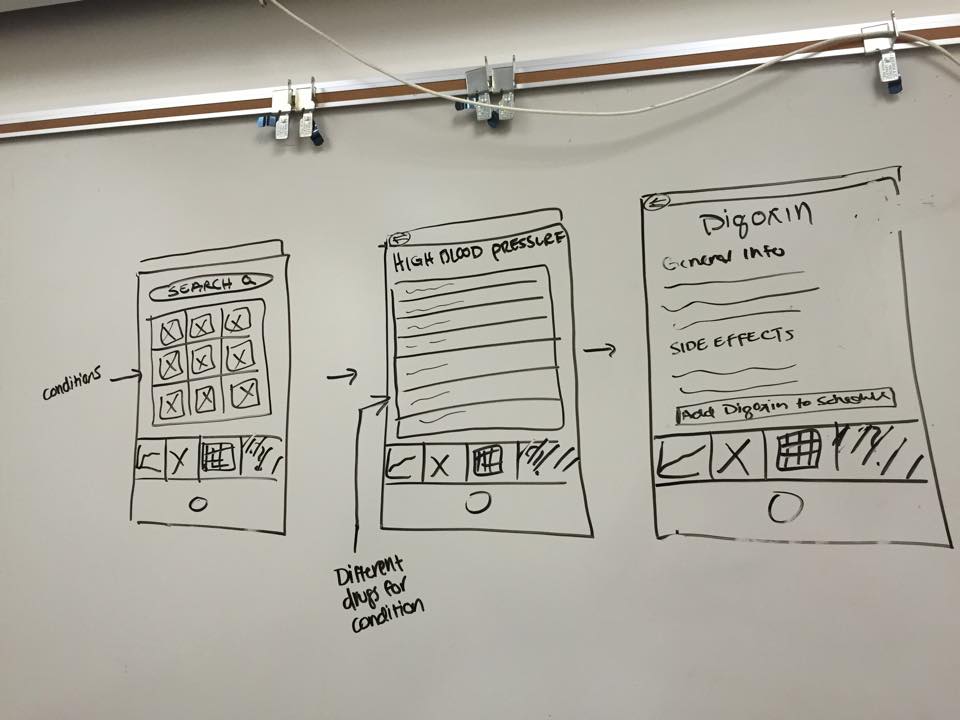 SEARCH
conditions
HIGH BLOOD PRESSURE
Different
drugs for
condition
Digoxin
General Info
SIDE EFFECTS
Add Digoxin to Schedule